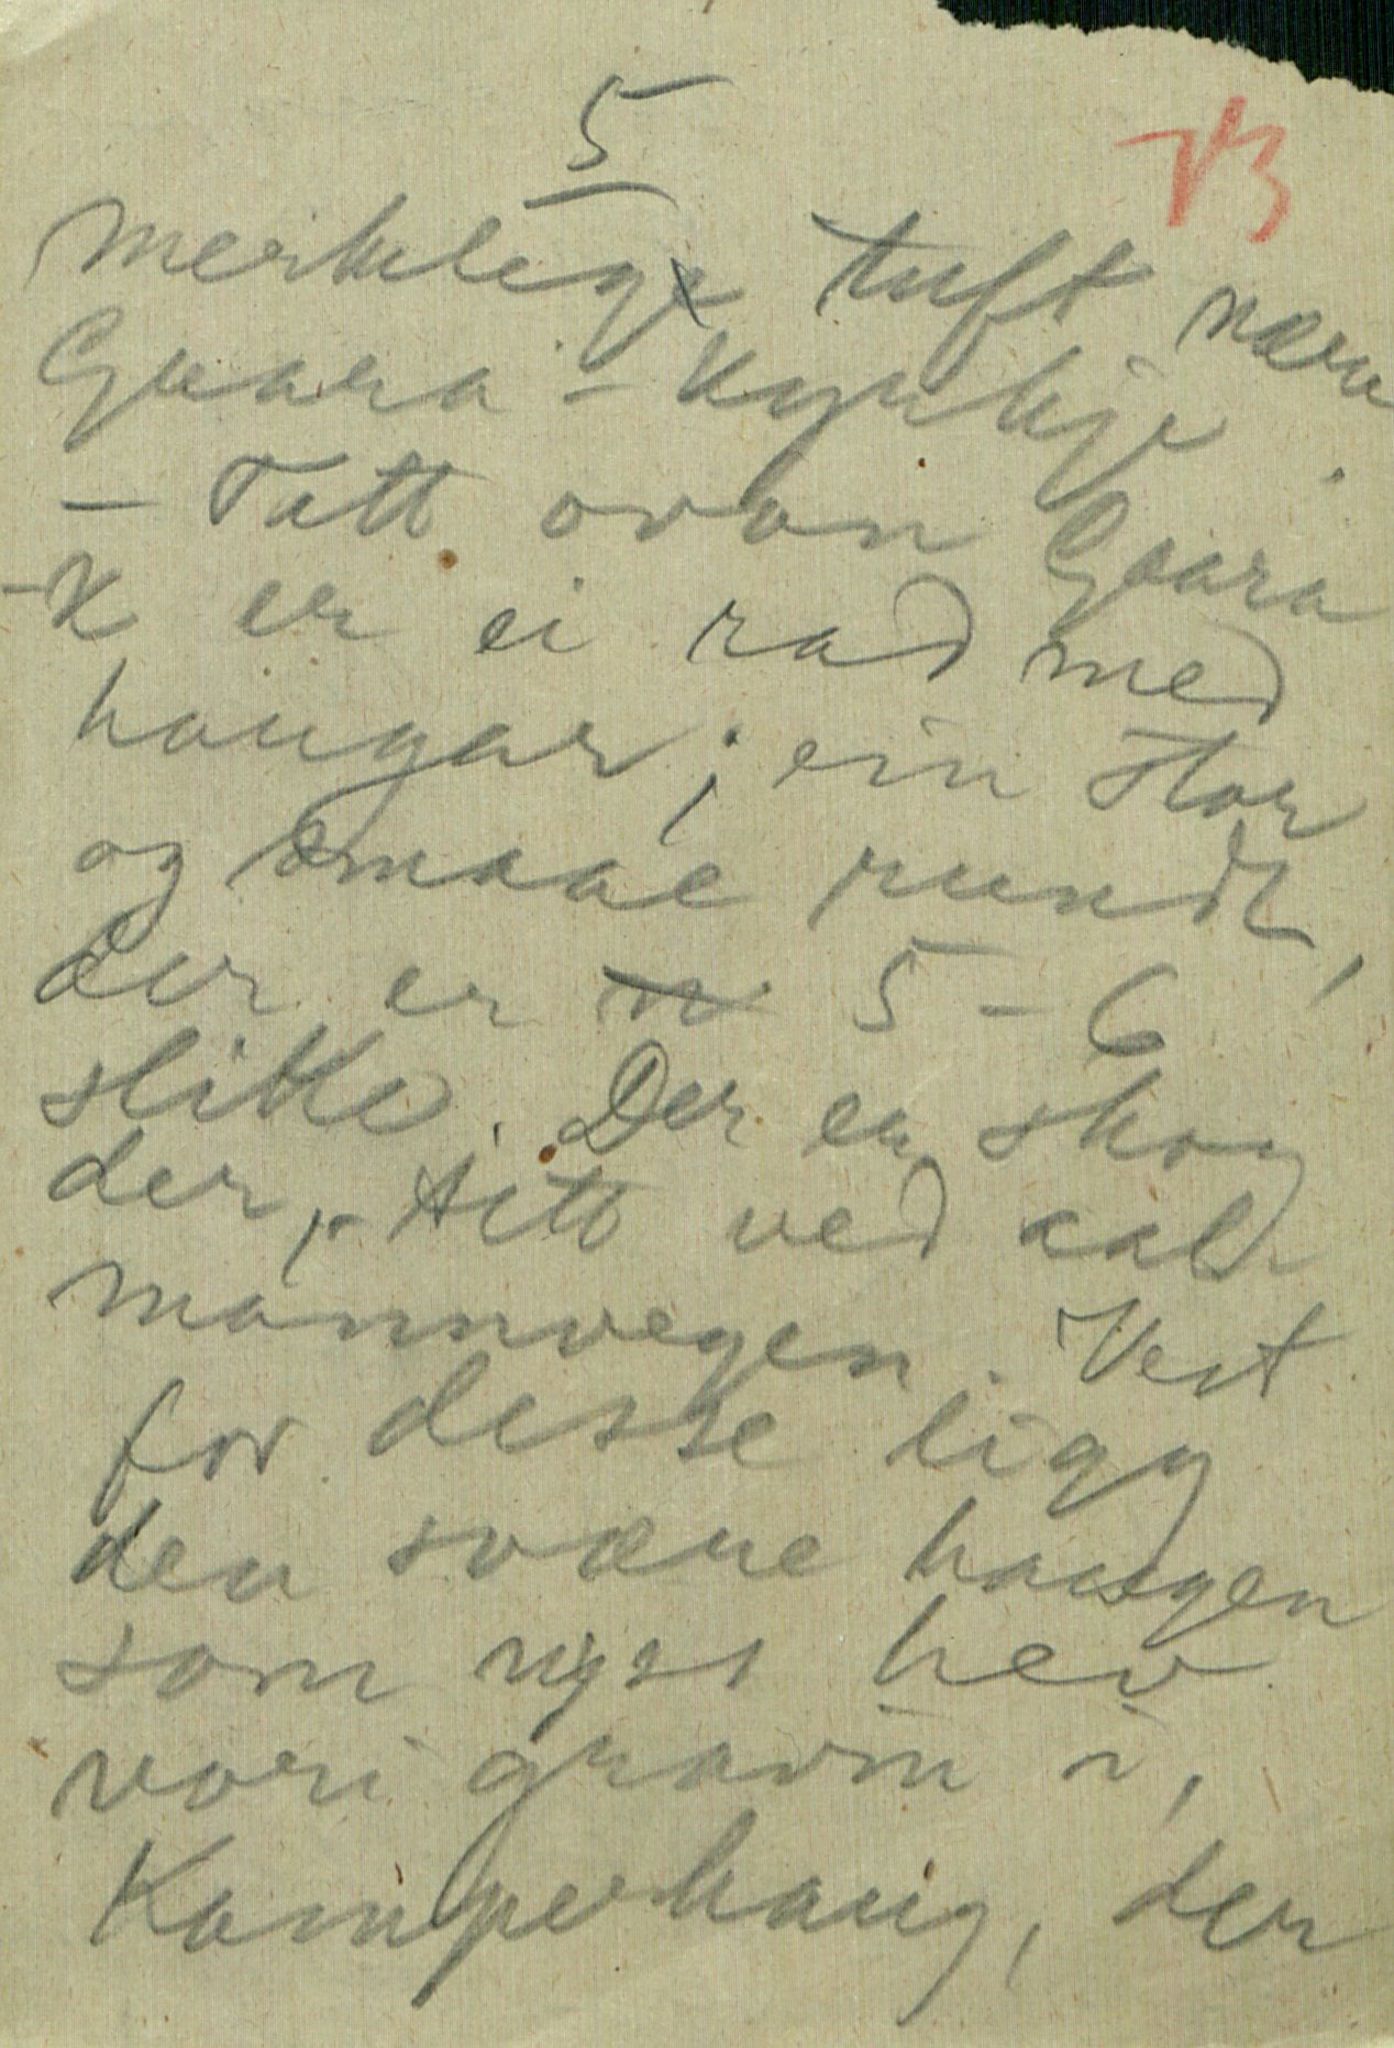 5
merkelige tuft nære
Gvara - Kyrkje.
- Tett ovan Gvara
-K er ei rad med
haugar; ein stor
og smaae rundt,
der er 5-6
slike. Der er skog
der, - tett ved aal-
mannvegen. Vest
for desse ligg
den svære haugen
som nyss hev
vori gravin i,
Kamperhaug, der